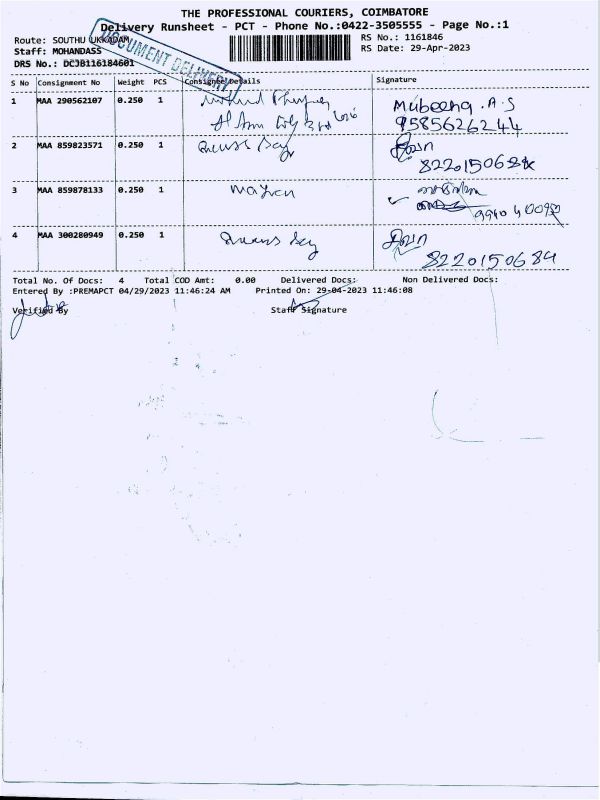 THE PROFESSIONAL COURIERS, COIMBATORE
Delivery Runsheet - PCT - Phone No.:0422-3505555 - Page No.:1
Route: SOUTHU UKKADAM
RS No.: 1161846
Staff: MOHANDASS
RS Date: 29-Apr-2023
DRS No.: DCJB116184601
DOCUMENT DELIVERY
S No Consignment No Weight PCS Consignee Details Signature
1 MAA 290562107 0.250 1 Mubeena .A.S
9585626244
2 MAA 859823571 0.250 1
3 MAA 859878133 0.250 1
4 MAA 300280949 0.250 1
8220150684
Total No. Of Docs: 4 Total COD Amt: 0.00 Delivered Docs: Non Delivered Docs:
Entered By :PREMAPCT 04/29/2023 11:46:24 AM Printed On: 29-04-2023 11:46:08
Verified By Staff Signature